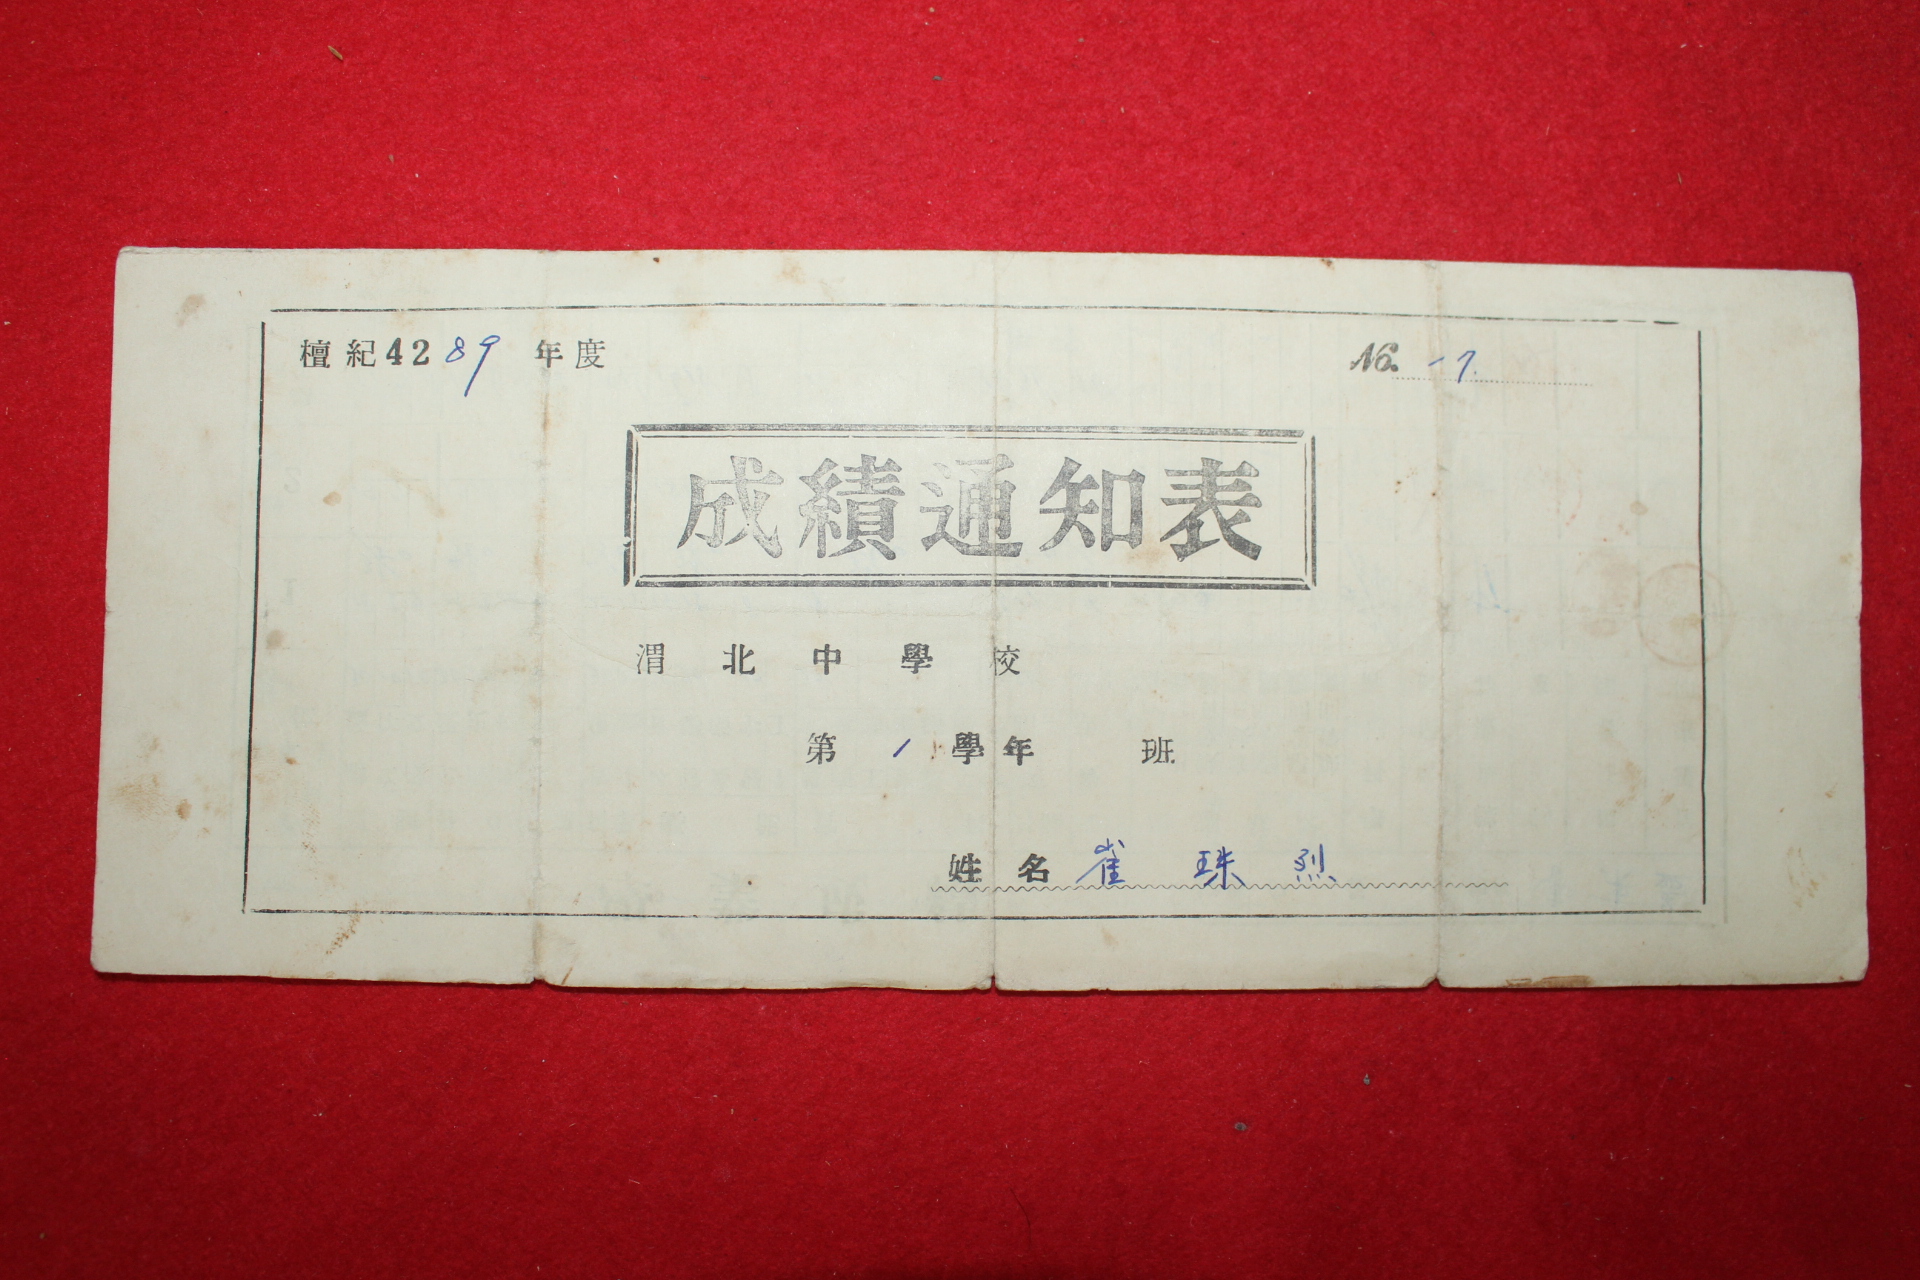 檀紀4289年度
No. -7.
成績通知表
渭北中學校
第1學年 班
姓名 崔珠烈